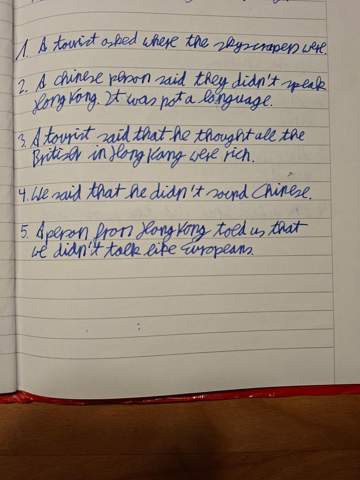 1. A tourist asked where the skyscrapers were.
2. A chinese person said they didn't speak
Hong Kong. It was not a language.
3. A tourist said that he thought all the
British in Hong Kong were rich.
4. We said that he didn't sound Chinese.
5. A person from Hong Kong told us that
we didn't talk like Europeans.